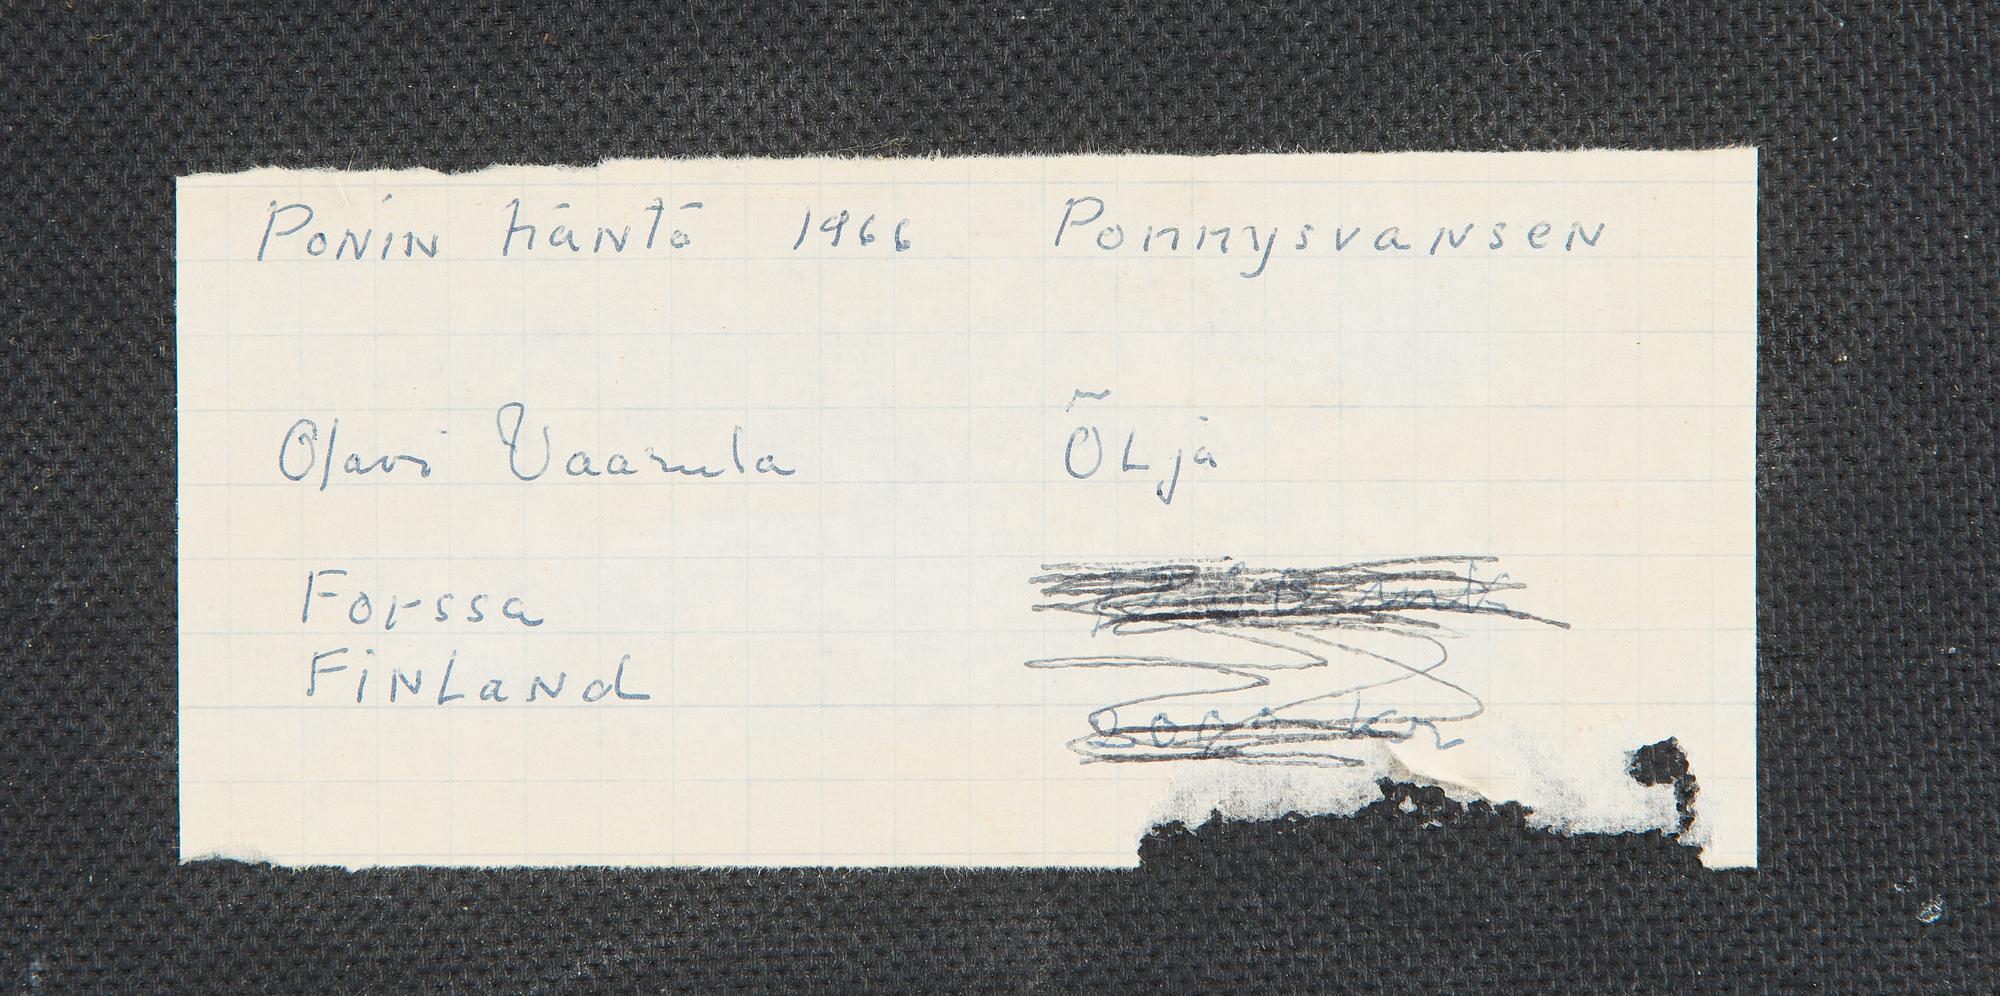 Ponin häntä 1966 Ponnysvansen
Olavi Vaarula ÕLja
Forssa
FinLand